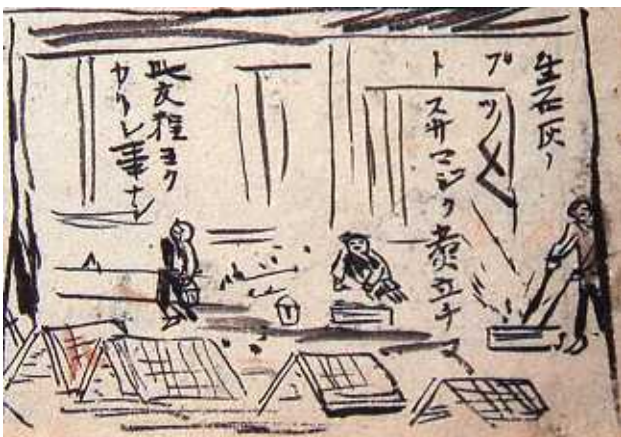 生石灰ノ
ブツ〱
トスサマジク煮立チ
此度程ヨク
事ナシ